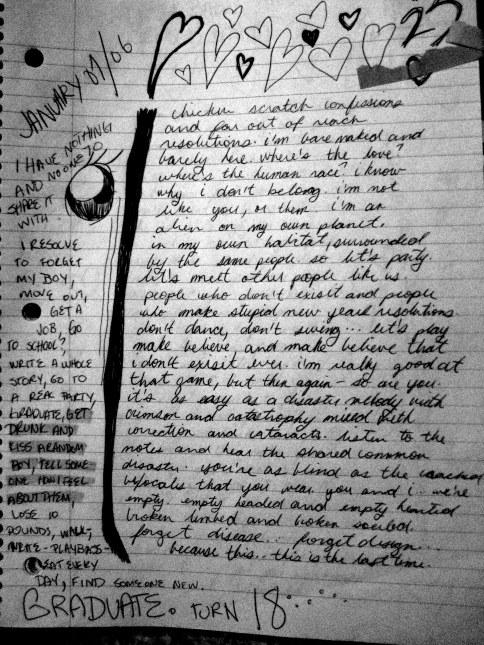 27
JANUARY 01/06
I HAVE NOTHING
AND NO ONE TO
SHARE IT
WITH.
I RESOLVE
TO FORGET
MY BOY,
MOVE OUT,
GET A
JOB, GO
TO SCHOOL?,
WRITE A WHOLE
STORY, GO TO
A REAL PARTY,
GRADUATE, GET
DRUNK AND
KISS A RANDOM
BOY, TELL SOME
ONE HOW I FEEL
ABOUT THEM,
LOSE 10
POUNDS, WALK,
WRITE - PLAYBASS-
EAT EVERY
DAY, FIND SOMEONE NEW.
GRADUATE. TURN 18.....
chicken scratch confessions
and far out of reach
resolutions. i'm bare naked and
barely here. where's the love?
where's the human race? i know
why i don't belong. i'm not
like you, or them. i'm an
alien on my own planet.
in my own habitat, surrounded
by the same people. so let's party.
let's meet other people like us.
people who don't exisit and people
who make stupid new years resolutions.
don't dance, don't swing... let's play
make believe and make believe that
i don't exisit ever. i'm really good at
that game, but then again - so are you.
it's as easy as a disaster melody with
crimson and catastrophy mixed with
correction and cataracts. listen to the
notes and hear the shared common
disaster. you're as blind as the cracked
bifocals that you wear. you and i.. we're
empty. empty headed and empty hearted
broken limbed and broken souled.
forget disease.. forget design...
because this.. this is the last time.